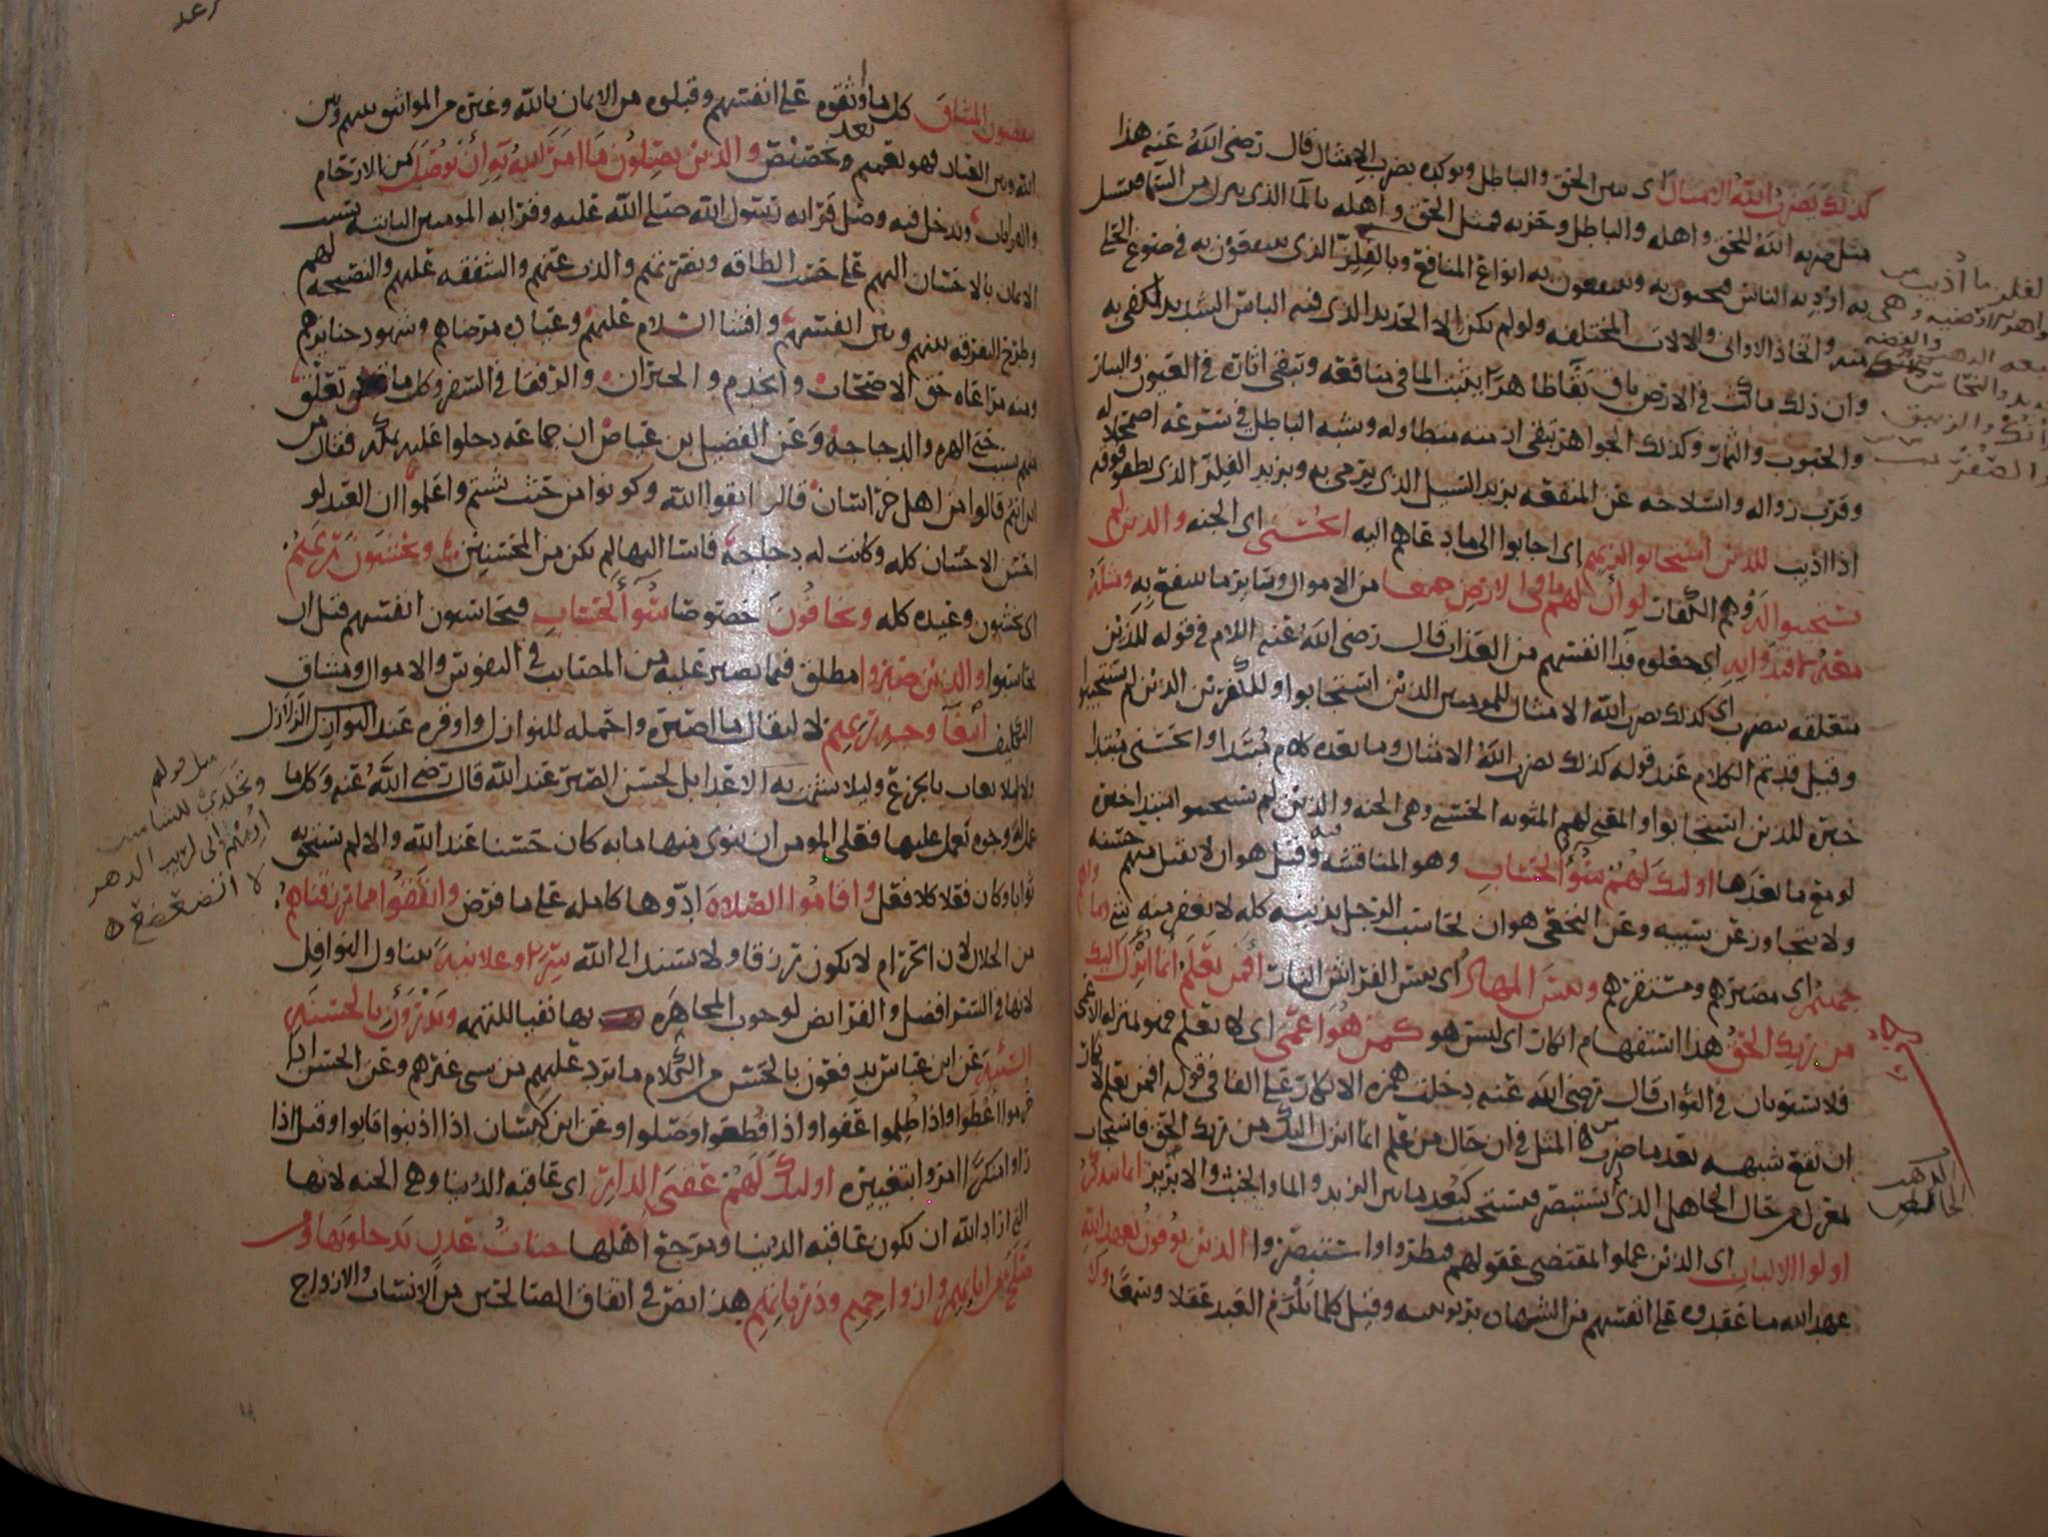 كذلك يضرب الله الامثال اى بين الحق والباطل ويوكده بضرب الامثال قال رضى الله عنه هذا
مثل ضربه الله للحق واهله والباطل وحزبه فمثل الحق واهله بالما الذى ينزل من السما فتسيل
به اودية الناس فيحيون به وينتفعون به انواع المنافع وبالفلز الذى ينتفعون به فى صوغ الحلى
منه واتخاذ الاوانى والالات المختلفه ولو لم يكن الا الحديد الذى فيه الباس الشديد لكفى به
وان ذلك ماكث فى الارض باق بقا ظاهرا يثبت الما فى منافعه وتبقى اثاره فى العيون والبيار
والحبوب والثمار وكذلك الجواهر تبقى ازمنه متطاوله وشبه الباطل فى سرعه اضمحلاله
وقرب زواله وانسلاخه عن المنفعه بزبد السيل الذى يرمى به وبزبد الفلز الذى يطفو فوقه
اذا اذيب للذين استجابوا لربهم اى اجابوا الى ما دعاهم اليه الحسنى اى الجنه والذين لم
يستجيبوا له وهم الكفار لو ان لهم ما فى الارض جميعا من الاموال وسايرما ينتفع به ومثله
معه لافتدوا به اى جعلوه فدا انفسهم من العذاب قال رضى الله عنه اللام فى قوله للذين
متعلقه بيضرب اى كذلك يضرب الله الامثال للمومنين الذين استجابوا وللكفرين الذين لم يستجيبوا
وقيل قد تم الكلام عند قوله كذلك يضرب الله الامثال وما بعده كلام مبتدا والحسنى مبتدا
خبره للذين استجابوا والمعنى لهم المثوبه الحسنى وهى الجنه والذين لم يستجيبوا مبتدا خبره
لو مع ما بعدها اولئك لهم سوء الحساب وهو المناقشه فيه وقيل هو ان لا تقبل منهم حسنه
ولا يتجاوز عن سيئه وعن النخعى هو ان يحاسب الرجل بذنبه كله لا يغفر منه شى وماواهم
جهنم اى مصيرهم ومستقرهم وبئس المهاد اى بئس الفراش النار افمن يعلم انما انزل اليك
من ربك الحق هذا استفهام انكار اى ليس هو كمن هو اعمى اى لا يعلم فهو بمنزله الاعمى
فلا يستويان فى الثواب قال رضى الله عنه دخلت همزه الانكار على الفا فى قوله افمن يعلم لانكار
ان تقع شبهه بعد ما ضرب من المثل فى ان حال من علم انما انزل اليك من ربك الحق فاستجاب
بمعزل من حال الجاهل الذى لم يستبصر فيستجيب كبعد ما بين الزبد والما والخبث والابريز انما يتذكر
اولوا الالباب اى الذين عملوا بمقتضى عقولهم فنظروا واستبصروا الذين يوفون بعهد الله
عهد الله ما عقدوه على انفسهم من الشهاده بربوبيته وقيل كلما يلزم العبد عقلا وسمعا ولا
ينقضون الميثاق كل ما وثقوه على انفسهم وقبلوه من الايمان بالله وغيره من المواثيق بينهم وبين
الله وبين العباد فهو تعميم بعد تخصيص والذين يصلون ما امر الله به ان يوصل من الارحام
والقرابات ويدخل فيه وصل قرابه رسول الله صلى الله عليه وقرابه المومنين الثابته بسبب
الايمان بالاحسان اليهم على حسب الطاقه ونصرتهم والذب عنهم والشفقه عليهم والنصيحه لهم
وطرح التفرقه بينهم وبين انفسهم وافشا السلام عليهم وعياده مرضاهم وشهود جنايزهم
ومنه مراعاه حق الاصحاب والخدم والجيران والرفقا فى السفر وكل ما تعلق
منهم بسبب حتى الهره والدجاجه وعن الفضيل بن عياض ان جماعه دخلوا عليه بمكه فقال من
اين انتم قالوا من اهل خراسان قال اتقوا الله وكونوا من حيث شئتم واعلموا ان العبد لو
احسن الاحسان كله وكانت له دجاجه فاسا اليها لم يكن من المحسنين ويخشون ربهم
اى يخشون وعيده كله ويخافون خصوصا سوء الحساب فيحاسبون انفسهم قبل ان
يحاسبوا والذين صبروا مطلق فيما يصبر عليه من المصايب فى النفوس والاموال ومشاق
التكليف ابتغا وجه ربهم لا ليقال ما اصبره واحمله للنوازل واوقره عند الزلازل
ولا ليلا يعاب بالجزع وليلا يشمت به الاعدا بل لحسن الصبر عند الله قال رضى الله عنه وكل ما
عمل له وجوه يعمل عليها فعلى المومن ان ينوى منها ما به كان حسنا عند الله والا لم يستحق به
ثوابا وكان فعلا كلا فعل واقاموا الصلاه ادوها كامله على ما فرض وانفقوا مما رزقناهم
من الحلال لان الحرام لا يكون رزقا ولا يسند الى الله سرا وعلانيه يتناول النوافل
لانها فى السر افضل والفرايض لوجوب المجاهره بها نفيا للتهمه ويدرؤن بالحسنه
السيئه عن ابن عباس يدفعون بالحسن من الكلام ما يرد عليهم من سى غيرهم وعن الحسن اذا
حرموا اعطوا واذا ظلموا عفوا واذا قطعوا وصلوا وعن ابن كيسان اذا اذنبوا تابوا وقيل اذا
راوا منكرا امروا بتغييره اولئك لهم عقبى الدار اى عاقبه الدنيا وهى الجنه لانها
التى اراد الله ان تكون عاقبه الدنيا ومرجع اهلها جنات عدن يدخلونها ومن
صلح من ابائهم وازواجهم وذرياتهم هذا نص فى اتفاق الصالحين من الانساب والازواج
مثل قولهم
وتجلدى للشامتين
اريهم انى لريب الدهر
لا اتضعضع